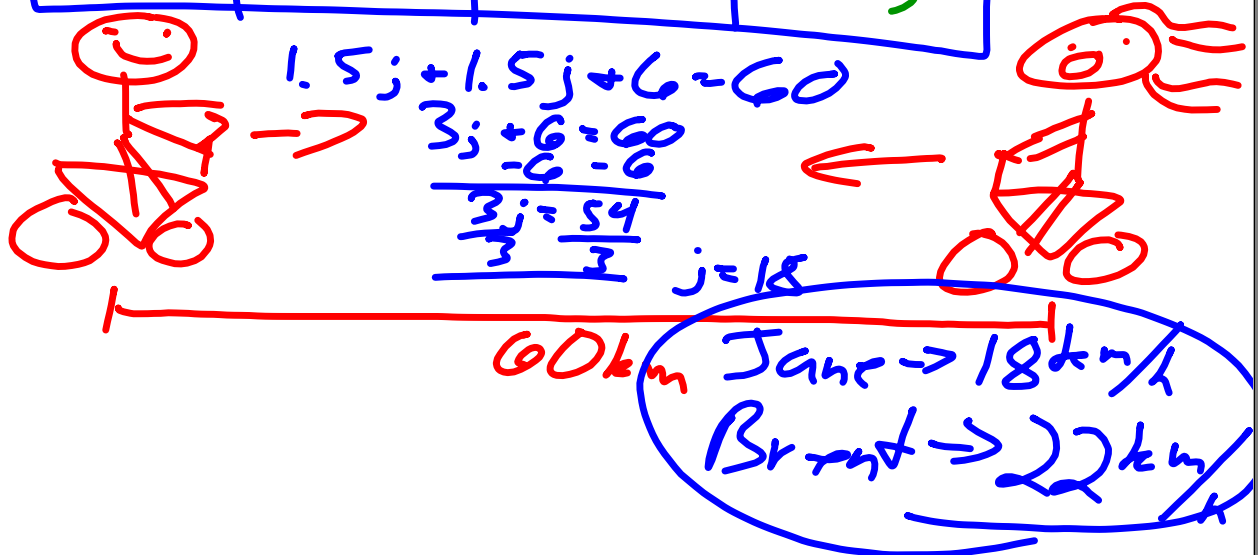 1.5j+1.5j+6=60
3j+6=60
-6 -6
3j=54
3 3
j=18
60km
Jane→18km/h
Brent→22km/h